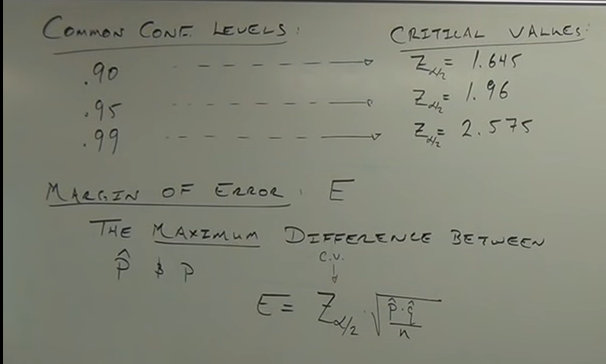 COMMON CONF. LEVELS: CRITICAL VALUES:
.90 Zα/2 = 1.645
.95 Zα/2 = 1.96
.99 Zα/2 = 2.575
MARGIN OF ERROR: E
THE MAXIMUM DIFFERENCE BETWEEN
p̂ & p
C.V.
E = Zα/2 · √(p̂·q̂/n)